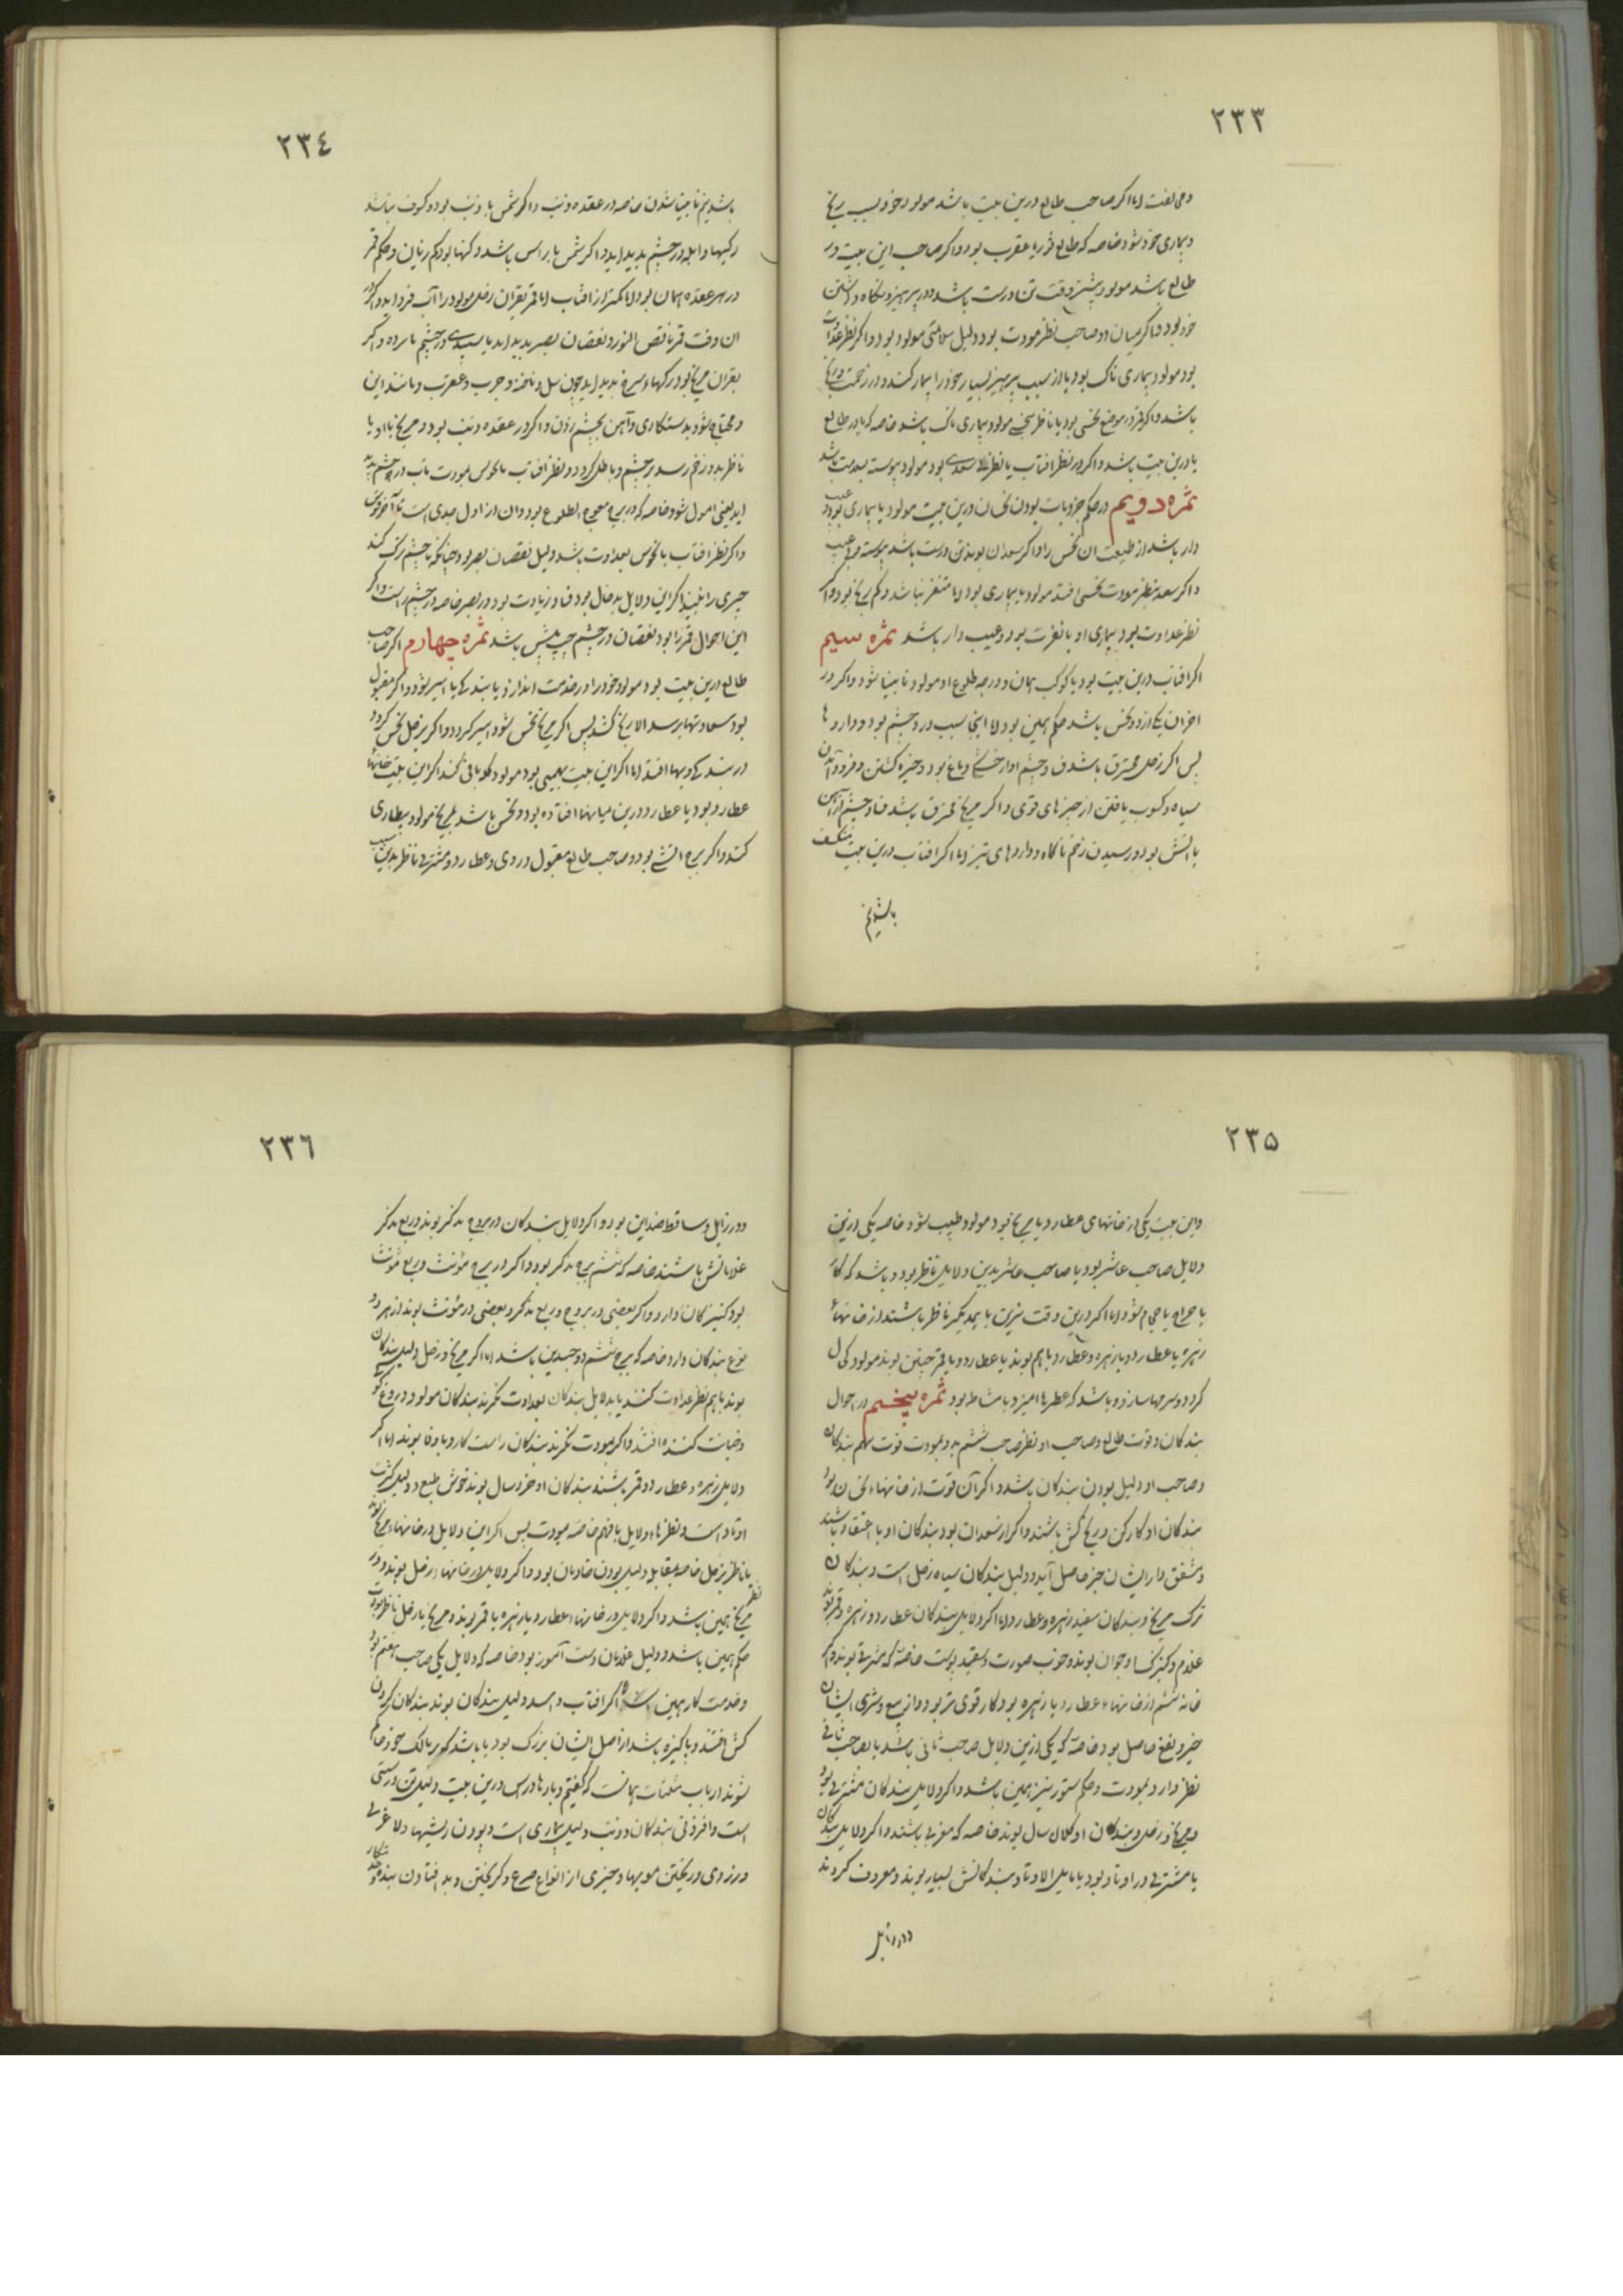 ٢٣٣
اما اگر صاحب طالع درین بیت باشد مولود خود بسبب رنج
و بیماری خود شود خاصه که طالع ثور یا عقرب بود و اگر صاحب این بیت در
طالع باشد مولود بیشتر وقت تن درست باشد و در پرهیز و نگاه داشتن
خود بود و اگر میان دو صاحب نظر مودت بود دلیل سلامتی مولود بود و اگر نظر عداوت
بود مولود بیماری ناک بود یا از سبب پرهیز بسیار خود را بیمار کند و در زحمت
باشد و اگر قمر در موضع نحسی بود یا ناظر نحسی مولود بیماری ناک باشد خاصه که یا در طالع
یا درین بیت باشد و اگر در نظر افتاب یا نظر سعدی بود مولود پیوسته بسلامت باشد
ثمره دویم در حکم جزویات بودن نحسان درین بیت مولود با بیماری بود و عیب
دار باشد از طبیعت ان نحس را و اگر سعدان بوند تن درست باشد پیوسته و بی عیب
و اگر سعد بنظر مودت نحسی افتد مولود با بیماری بود اما متنفر نباشد و کم رنج بود و اگر
نظر عداوت بود بیماری او با نفرت بود و عیب دار باشد ثمره سیم
اگر افتاب درین بیت بود با کوکب یمان و درجه طلوع او مولود نابینا شود و اگر در
یکی از دو نحس باشد حکم همین بود اما اینجا سبب درد چشم بود و داروها
پس اگر زحل محترق باشد و چشم او از خشکی دماغ بود و خیره گشتن و فرود آمدن
سیاه و کوب یافتن از چیزهای قوی و اگر مریخ محترق باشد فساد چشم از آهن
یا آتش بود و رسیدن زخم ناگاه و داروهای تیز اما اگر افتاب درین بیت منکسف
باشد بیم
٢٣٤
باشد بیم نابینا شدن خاصه در عقده ذنب و اگر شمس با ذنب بود و کسوف نباشد
رگها و ابله در چشم پدید اید و اگر شمس با راس باشد و کنها بود کم زیان و حکم قمر
در هر عقده همان بود اما کمتر از افتاب اما قمر بقران زحل مولود را آب فرود اید و اگر در
ان وقت قمر ناقص النور بود نقصان بصر پدید اید یا سپیدی در چشم یا پرده و اگر
بقران مریخ بود رگهاء سرخ پدید اید چون سل و ناخنه و جرب و عقرب و مانند این
و محتاج شود بدستکاری و آهن بچشم زدن و اگر در عقده ذنب بود و مریخ با او یا
ناظر بدو زخم رسد بر چشم و باطل گردد و نظر افتاب با نحوس بمودت باب در چشم پدید
اید یعنی امول شود خاصه که در برج معوج الطلوع بود و ان از اول جدی است تا آخر قوس
و اگر نظر افتاب با نحوس بعداوت باشد دلیل نقصان بصر بود چنانکه با چشم بزرگ کند
چیزی را نبیند اگر این دلایل بد حال بود فساد زیادت بود در بصر خاصه در چشم راست و اگر
این احوال قمر را بود نقصان در چشم چپ بیش باشد ثمره چهارم اگر صاحب
طالع درین بیت بود مولود خود را در خدمت اندازد یا بندگی یا اسیر شود و اگر مقبول
بود سعادتها برسد الا رنج کشد پس اگر مریخ نحس شود اسیر گردد و اگر بزحل نحس گردد
در بندگی و بها افتد اما اگر این بیت بهیمی بود مولود گله بانی کند اگر این بیت خانهاء
عطارد بود یا عطارد درین میانها افتاده بود و نحس باشد بمریخ مولود بیطاری
کند و اگر برج انسی بود و صاحب طالع مقبول در وی و عطارد و مشتری ناظر بدین بیت
٢٣٥
و این بیت یکی از خانهای عطارد یا مریخ بود مولود طبیب شود خاصه یکی ازین
دلایل صاحب عاشر بود یا صاحب عاشر بدین دلایل ناظر بود و باشد که
یا جراح یا حجام شود اما اگر درین وقت نیرین بایکدیگر ناظر باشند از خانهاء
زهره یا عطارد و یا زهره و عطارد باهم بوند یا عطارد و یا قمر چنین بوند مولود کحال
گردد و سرمها سازد و باشد که عطرها امیزد یا مشاطه بود ثمره پنجم در احوال
بندگان و قوت طالع و صاحب او نظر صاحب ششم بدو بمودت قوت سهم بندگان
و صاحب او دلیل بودن بندگان باشد و اگر آن قوت از خانهاء نحسان بود
بندگان او کارکن و رنج کش باشند و اگر از سعدان بود بندگان او با اعتقاد باشند
و مشفق و از ایشان خیر حاصل آید و دلیل بندگان سیاه زحل است و بندگان
ترک مریخ و بندگان سفید زهره و عطارد اما اگر دلایل بندگان عطارد و زهره و قمر بوند
غلام و کنیزکسا و جوان بوند و خوب صورت و سفید پوست خاصه که مشرقی بوند و اگر
خانه ششم از خانهاء عطارد یا زهره بود کار قوی تر بود و از بیع و شری ایشان
خیر و نفع حاصل بود خاصه که یکی ازین دلایل صاحب ثانی باشد یا بصاحب ثانی
نظر دارد بمودت و حکم ستور نیز همین باشد و اگر دلایل بندگان مشتری بود
و مریخ و زحل بندگان او کلان سال بوند خاصه که مغربی باشند و اگر دلایل بندگان
با مشتری در اوتاد بود یا مایل الاوتاد بندگانش بسیار بوند و معروف گردند
و در زایل
٢٣٦
و در زایل و ساقط ضد این بود و اگر دلایل بندگان در بروج مذکر بوند و ربع مذکر
غلامانش باشند خاصه که ششم برج مذکر بود و اگر در برج مؤنث و ربع مؤنث
بود کنیزکان دارد و اگر بعضی در بروج و ربع مذکر و بعضی در مؤنث بوند از هر دو
نوع بندگان دارد خاصه که برج ششم ذوجسدین باشد اما اگر مریخ و زحل دلیل بندگان
بوند باهم نظر عداوت کنند یا بدلایل بندگان بعداوت نگرند بندگان مولود دروغ گو
و خیانت کننده افتند و اگر بمودت نگرند بندگان راست کار و با وفا بوند اما اگر
دلایل زهره و عطارد و قمر باشند بندگان او خرد سال بوند خوش طبع و دلیل کثرت
اوتاد است و نظرهاء دلایل باهم خاصه بمودت پس اگر این دلایل در خانهاء مریخ بوند
یا ناظر بزحل خاصه بمقابله دلیل بودن خادمان بود و اگر دلایل در خانهاء زحل بوند و در نظر
مریخ همین باشد و اگر دلایل در خانهاء عطارد یا زهره با قمر بوند و مریخ یا زحل ناظر بمودت
حکم همین باشد و دلیل غلامان دست آموز بود خاصه که دلایل یکی صاحب هفتم بود
و خدمت کار همین است اما اگر افتاب و اسد دلیل بندگان بوند بندگان گردن
کش افتند و پاکیزه باشد از اصل ایشان بزرگ بود یا باشد که بر مالک خود حاکم
شوند ارباب مثلثات همانست که گفتیم و بارها و راس درین بیت دلیل تن درستی
است و افزونی بندگان و ذنب دلیل بیماری است و بودن ریشها و لاغری
و زردی و ریختن مویها و چیزی از انواع صرع و گریختن و بد افتادن بندگان و خدمتکار